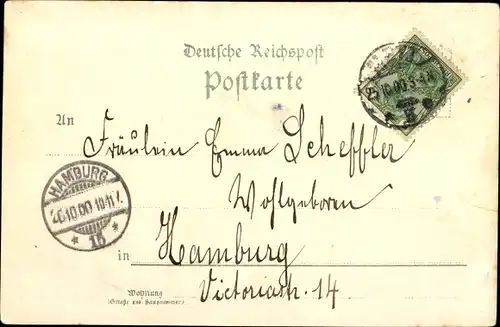 Deutsche Reichspost
Postkarte
10.00.3-4N
An
Fräulein Emma Scheffler
Wohlgeboren
HAMBURG
26.10.00.10-11V.
* 15 *
in Hamburg
Wohnung
(Straße und Hausnummer)
Victoriastr. 14